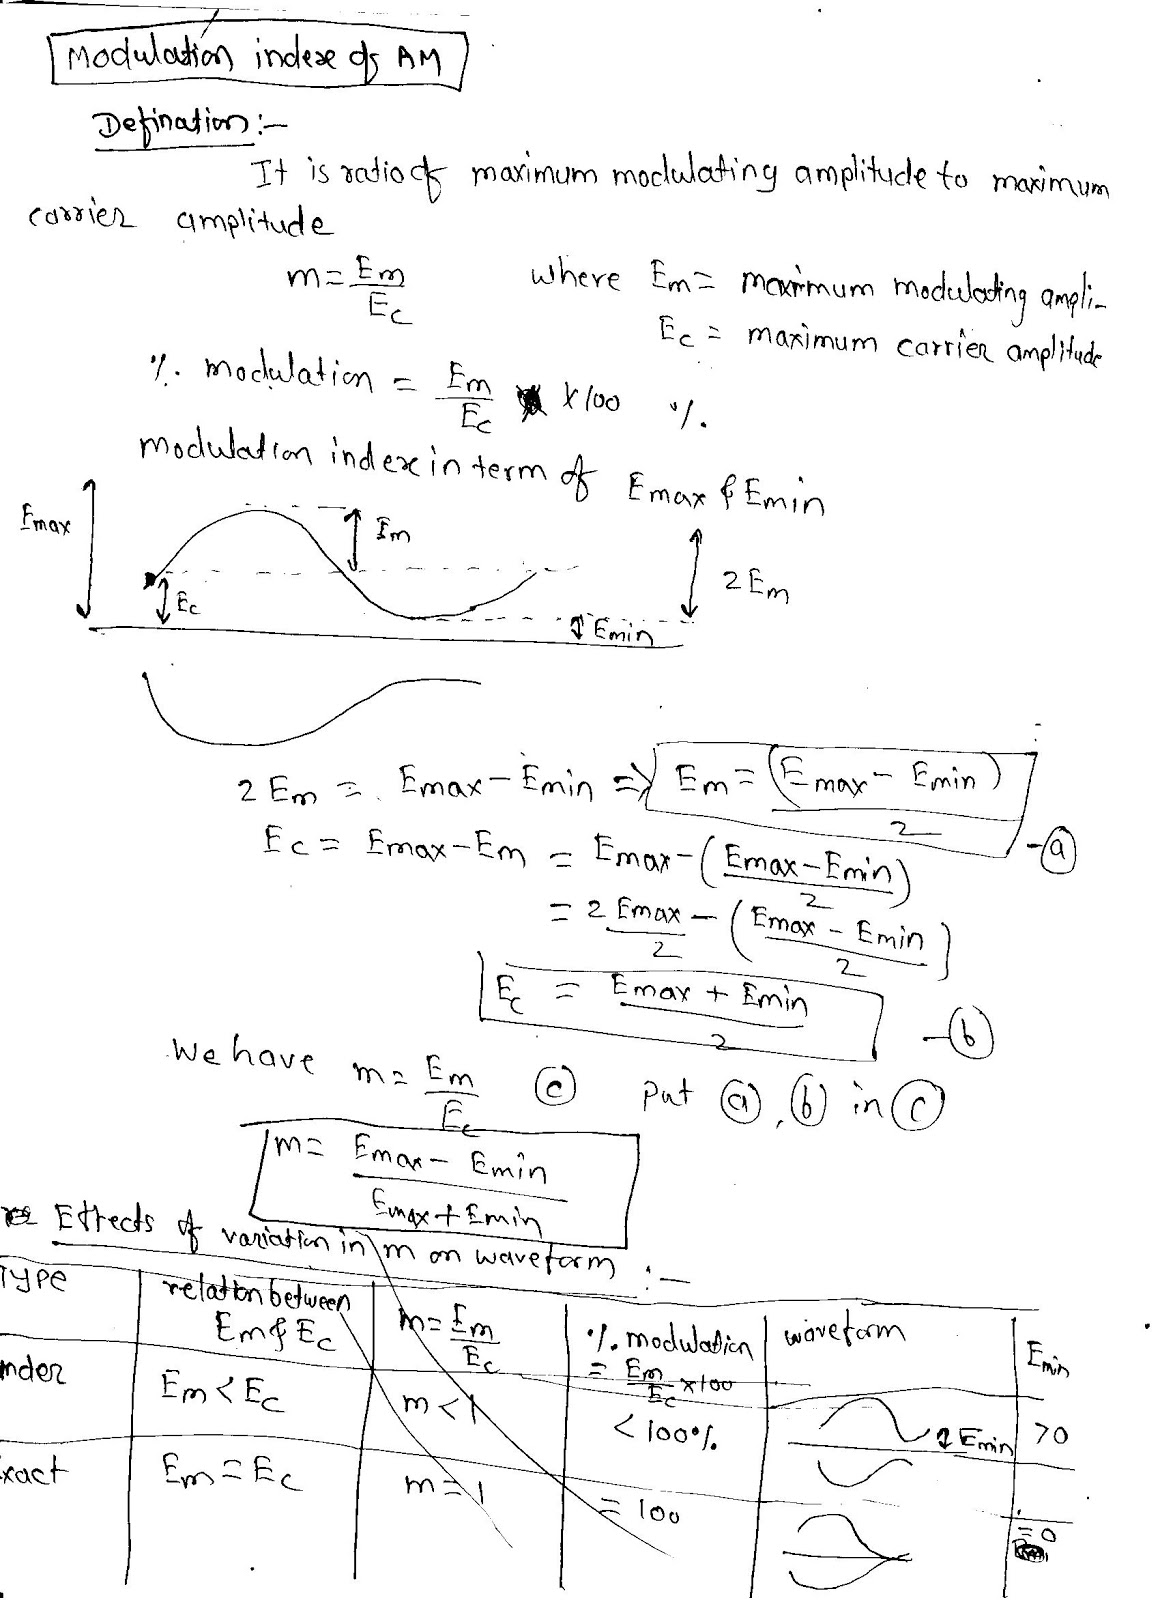 Modulation index of AM
Defination:-
It is ratio of maximum modulating amplitude to maximum
carrier amplitude
m = Em/Ec where Em = maximum modulating ampli-
Ec = maximum carrier amplitude
% modulation = Em/Ec × 100 %.
modulation index in term of Emax & Emin
Emax
Em
2 Em
Ec
Emin
2 Em = Emax - Emin => Em = (Emax - Emin)/2 - (a)
Ec = Emax - Em = Emax - (Emax - Emin)/2
= 2 Emax/2 - (Emax - Emin)/2
Ec = Emax + Emin/2 - (b)
We have m = Em/Ec (c) put (a), (b) in (c)
m = Emax - Emin/Emax + Emin
Effects of variation in m on waveform :-
Type relation between Em & Ec m = Em/Ec % modulation = Em/Ec × 100 waveform Emin
nder Em < Ec m < 1 < 100% Emin > 0
xact Em = Ec m = 1 = 100 = 0